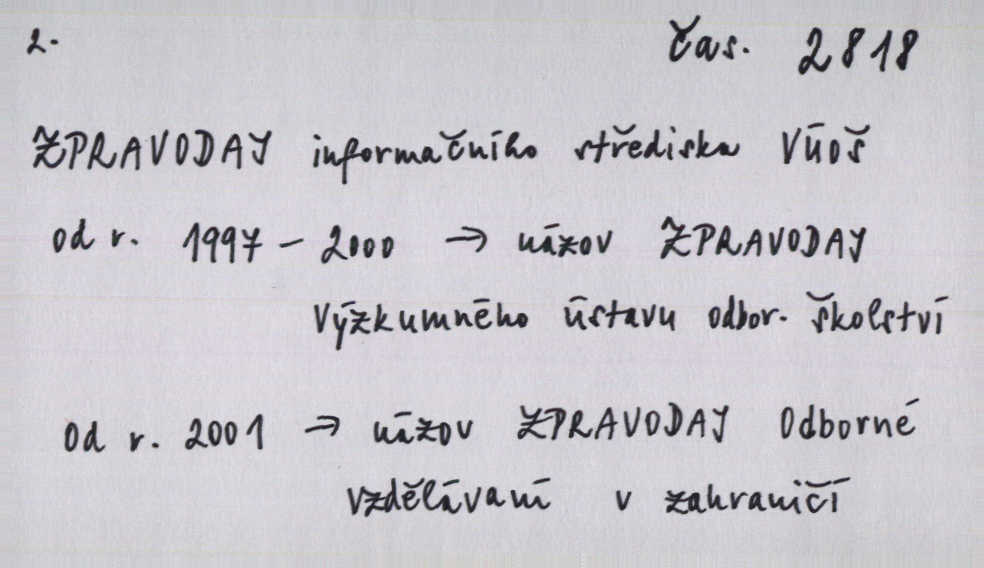 2. Čas. 2818
ZPRAVODAJ informačního střediska VÚOŠ
od r. 1997 – 2000 → názov ZPRAVODAJ
Výzkumného ústavu odbor. školství
Od r. 2001 → názov ZPRAVODAJ Odborné
vzdělávaní v zahraničí